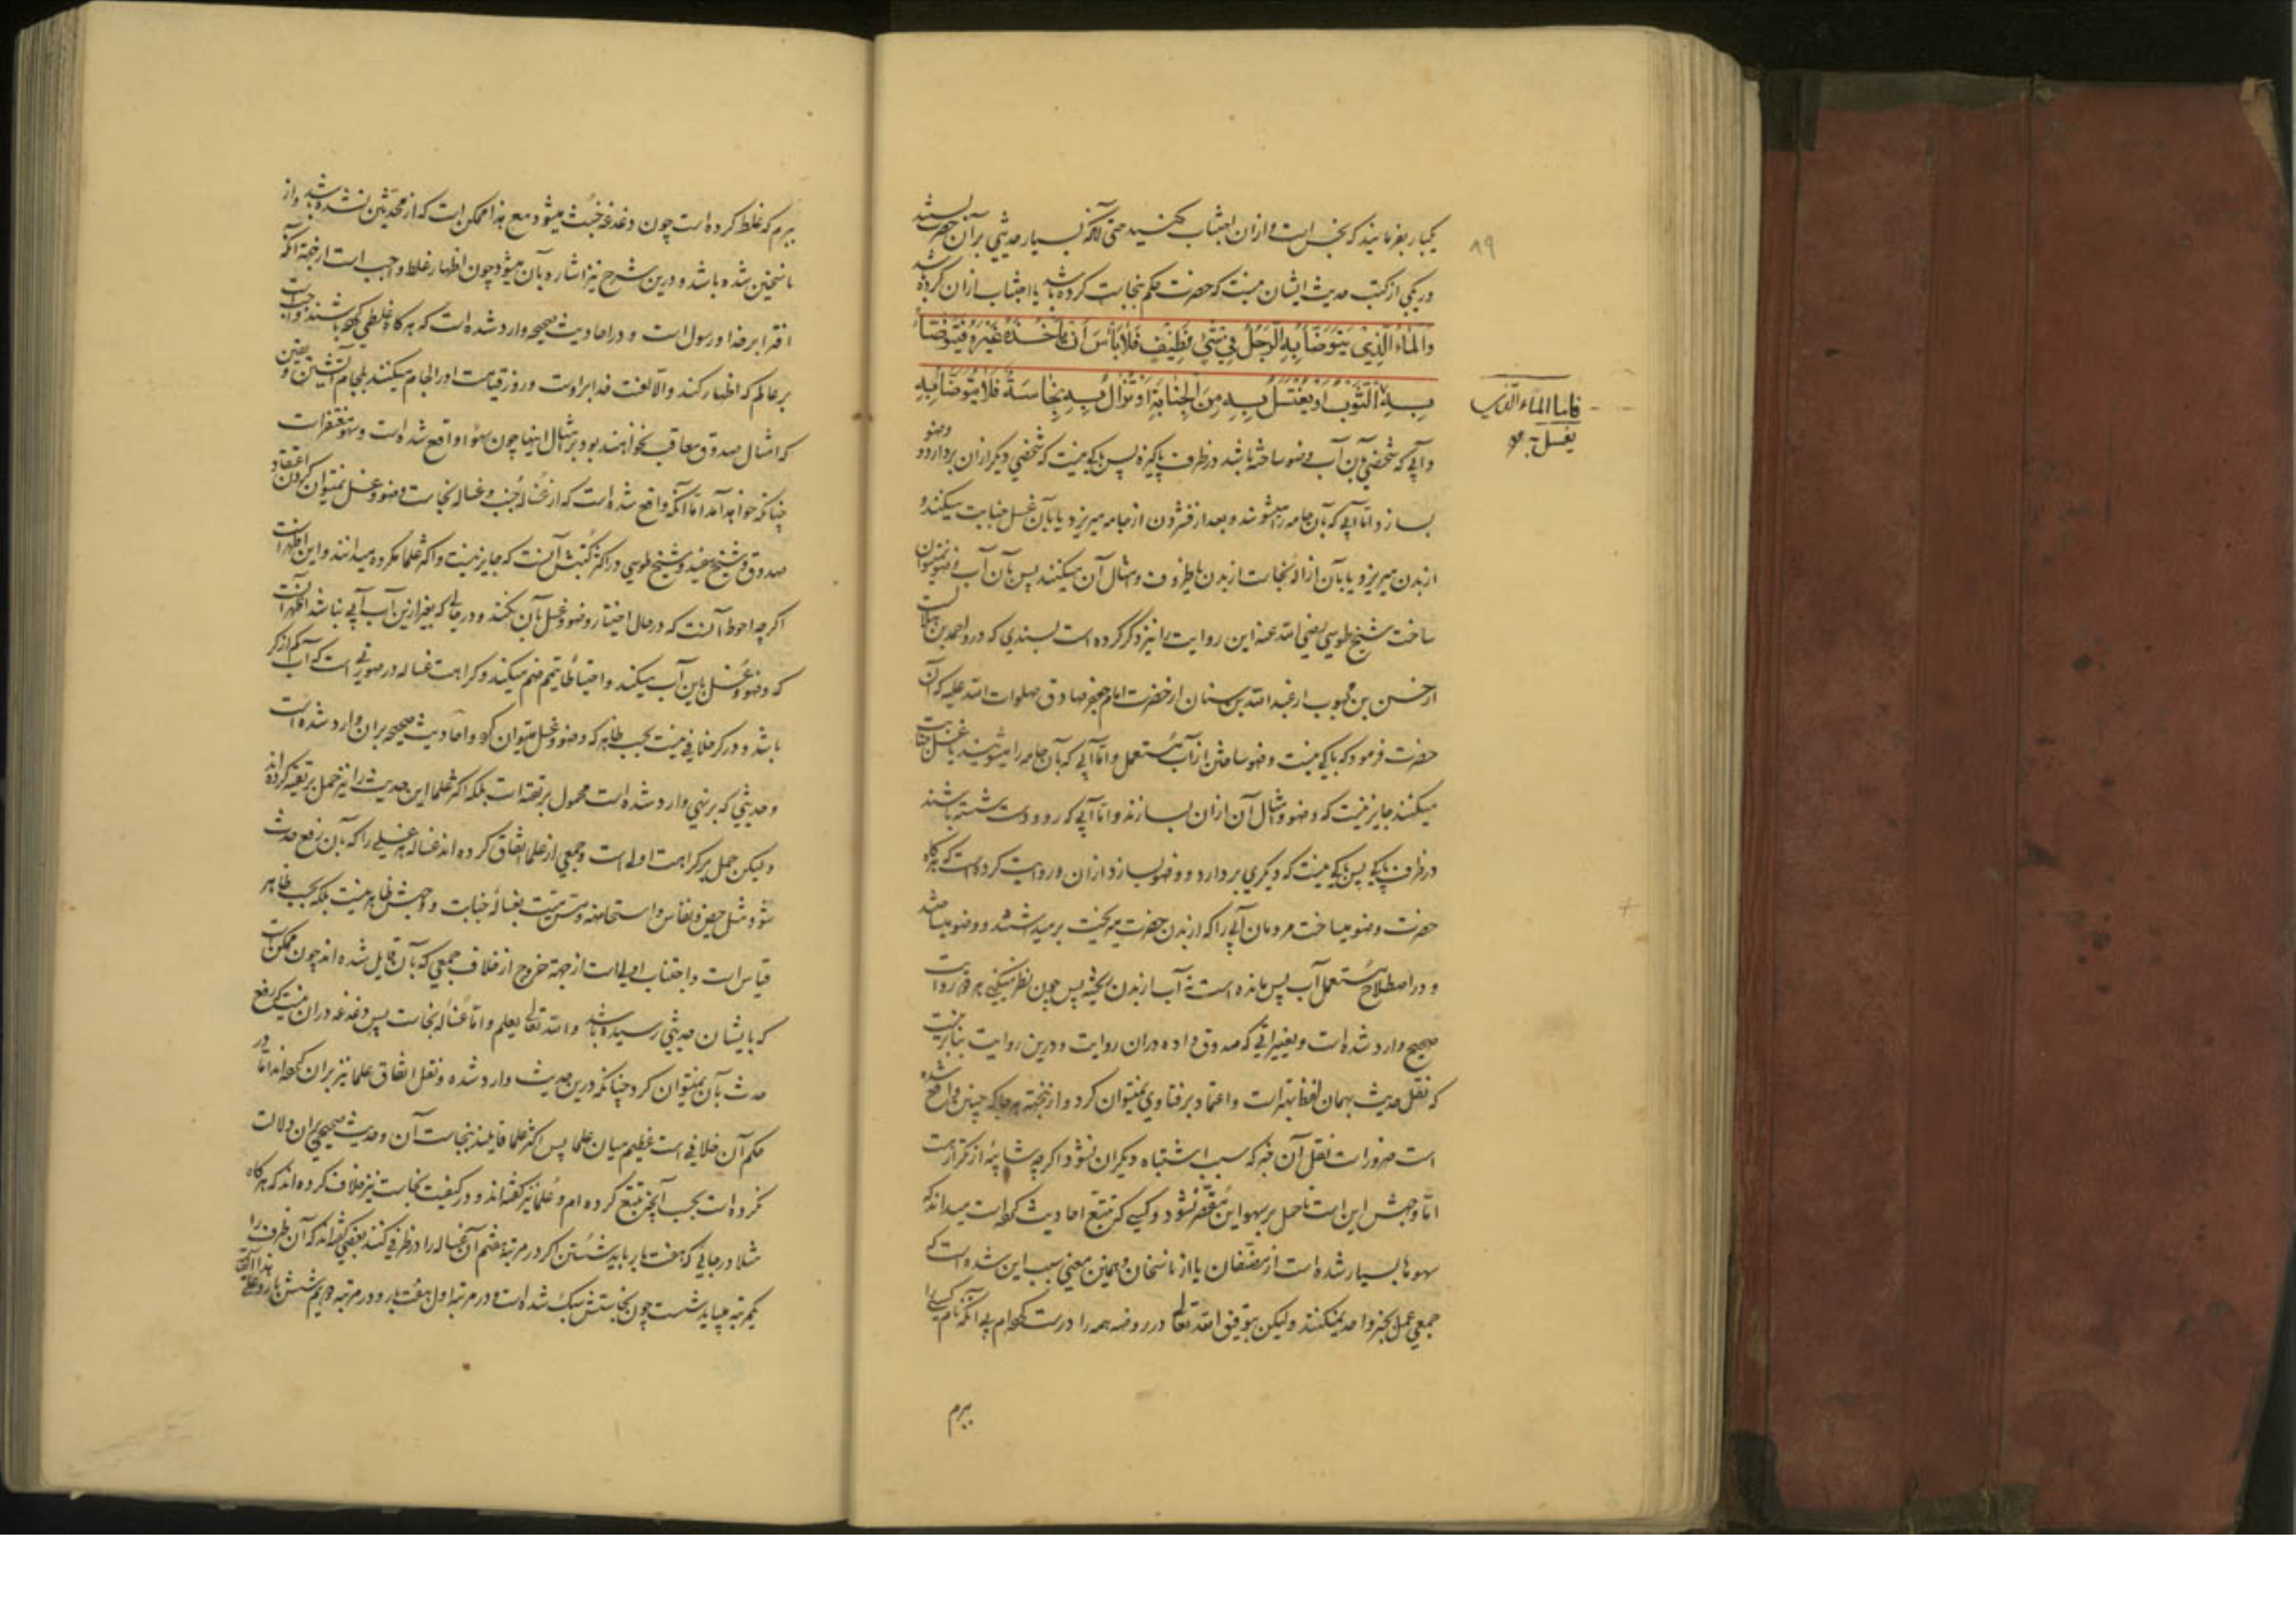 یکبار بفرمایند که نجس است و ازان اجتناب کنید حتی آنکه بسیار حدیثی بر آن حضرت بستند
در یکی از کتب حدیث ایشان نیست که حضرت حکم بنجاست کرده باشد یا اجتناب ازان کرده باشد
وَالْمَاءُ الَّذِي يَتَوَضَّأُ بِهِ الرَّجُلُ فِي شَيْءٍ نَظِيفٍ فَلَا بَأْسَ أَنْ يَأْخُذَهُ غَيْرُهُ فَيَتَوَضَّأُ
بِهِ الثَّوْبُ أَوْ يُغْتَسَلُ بِهِ مِنَ الْجَنَابَةِ أَوْ تُزَالُ بِهِ نَجَاسَةٌ فَلَا يُتَوَضَّأُ بِهِ
و آبی که شخصی بآن آب وضو ساخته باشد در ظرف پاکیزه پس باکی نیست که شخصی دیگر ازان بردارد و وضو
بسازد و اما آبی که بآن جامه را میشویند و بعد از فشردن از جامه میریزد یا بآن غسل جنابت میکنند و
از بدن میریزد یا بآن ازالۀ نجاست از بدن یا ظروف و امثال آن میکنند پس بآن آب وضو نمیتوان
ساخت شیخ طوسی رضی الله عنه این روایت را نیز ذکر کرده است بسندی که درو احمد بن هلالست
از حسن بن محبوب از عبد الله بن سنان از حضرت امام جعفر صادق صلوات الله علیه که آن
حضرت فرمود که باکی نیست وضو ساختن از آب مستعمل و اما آبی که بآن جامه را میشویند یا غسل جنابت
میکنند جایز نیست که وضو و امثال آن ازان بسازند و اما آبی که رو و دست شسته باشند
در ظرف پاکی پس باکی نیست که دیگری بردارد و وضو بسازد ازان و روایت کرده است که هرگاه
حضرت وضو میساخت مردمان آبی را که از بدن حضرت میریخت برمیداشتند و وضو میساختند
و در اصطلاح مستعمل آب پس مانده است نه آب از بدن ریخته پس چون نظر میکنی هر دو روایت
صحیح وارد شده است و تغییراتی که صدوق داده دران روایت و درین روایت بنابرینست
که نقل حدیث بهمان لفظ بهتر است و اعتماد بر فتاوی نمیتوان کرد و ازینجهته هرجا که چنین واقع شده
است ضرور است نقل آن خبر که سبب اشتباه دیگران نشود اگرچه شایبۀ از تکرار هست
اما وجهش این است تا حمل بر سهو این مقصر نشود و کسی که تتبع احادیث کرده است میداند که
سهوها بسیار شده است از مصنفان یا از ناسخان و همین معنی سبب این شده است که
جمعی عمل بخبر واحد نمیکنند ولیکن بتوفیق الله تعالی در روضه همه را درست کرده‌ام بی آنکه نام کسی را
ببرم
۸۹
فاما الماء الذی
یغسل به
ببرم که غلط کرده است چون دغدغه خبث میشود مع هذا ممکن است که از محدثین نشده باشد و از
ناسخین شده باشد و درین شرح نیز اشاره بآن میشود چون اظهار غلط واجب است ازجهة آنکه
افترا بر خدا و رسول است و در احادیث صحیحه وارد شده است که هرگاه غلطی کرده باشند واجبست
بر عالم که اظهار کند والا لعنت خدا بر اوست و روز قیامت او را لجام میکنند بلجام آتشین و یقین
که امثال صدوق معاقب نخواهند بود بر مثال اینها چون سهوا واقع شده است و سهو مغتفرست
چنانکه خواهد آمد اما آنکه واقع شده است که از غسالۀ جنب و غسالۀ نجاست وضو و غسل نمیتوان کردن اعتقاد
صدوق و شیخ مفید و شیخ طوسی در اکثر کتبش آنست که جایز نیست و اکثر علما مکروه میدانند و این اظهر است
اگرچه احوط آنست که در حال اختیار وضو و غسل بآن نکنند و در حالی که بغیر ازین آب آبی نباشد اظهر آنست
که وضو و غسل باین آب میکنند و احتیاطا تیمم ضم میکنند و کراهت غساله در صورتی است که آب کم از کر
باشد و در کر خلافی نیست بحسب ظاهر که وضو و غسل میتوان کرد و احادیث صحیحه بران وارد شده است
و حدیثی که بر نهی وارد شده است محمول بر تقیه است بلکه اکثر علما این حدیث را نیز حمل بر تقیه کرده‌اند
ولیکن حمل بر کراهت اولی است و جمعی از علما اتفاق کرده‌اند غساله هر غسلی را که بآن رفع حدث
شود مثل حیض و نفاس و استحاضه و مس میت بغسالۀ جنابت و وجهش ظاهر نیست بلکه بحسب ظاهر
قیاس است و اجتناب اولی است ازجهة خروج از خلاف جمعی که بآن قایل شده‌اند چون ممکن است
که بایشان حدیثی رسیده باشد و الله تعالی یعلم و اما غسالۀ نجاست پس دغدغه دران نیست که رفع
حدث بآن نمیتوان کرد چنانکه درین حدیث وارد شده و نقل اتفاق علما نیز بران کرده‌اند اما در
حکم آن خلافی است عظیم میان علما پس اکثر علما قایلند بنجاست آن و حدیث صحیحی بران دلالت
نکرده است بحسب آنچه تتبع کرده‌ام و علما نیز گفته‌اند و در کیفیت نجاست نیز خلاف کرده‌اند که هرگاه
مثلا در جایی که هفت بار باید شستن اگر در مرتبۀ هفتم آن غساله را در ظرفی کنند بعضی گفته‌اند که آن ظرف را
یکمرتبه میباید شست چون نجاستش سبک شده است و در مرتبۀ اول هفت بار و در مرتبۀ دویم شش بار و علی هذا القیاس